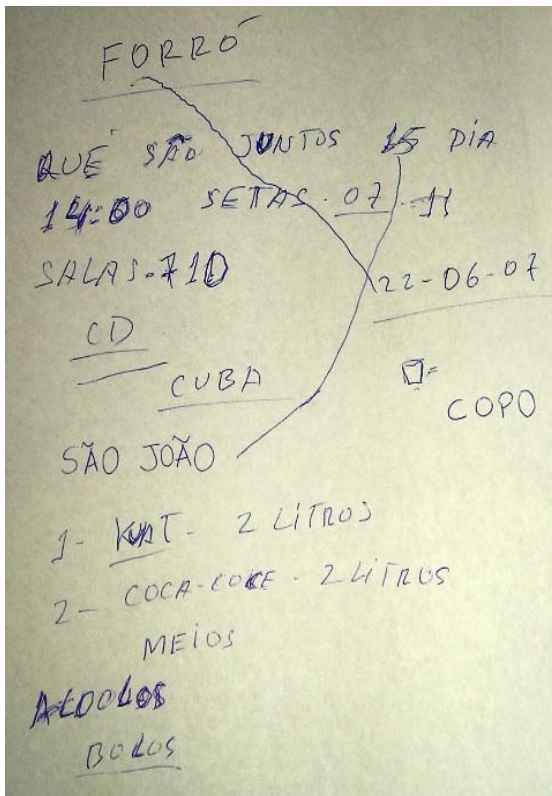 FORRÓ
QUÉ SÃO JUNTOS 15 DIA
14:00 SETAS. 07-11
SALAS-71D
22-06-07
CD
CUBA
COPO
SÃO JOÃO
1- KUAT- 2 LITROS
2- COCA-COKE- 2 LITROS
MEIOS
BOLOS